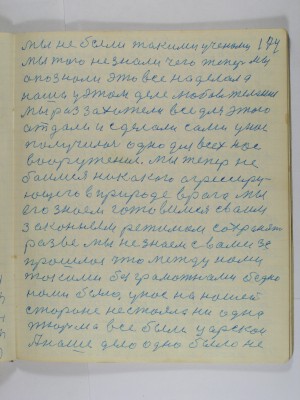 мы не были такими учеными 174
мы того не знали чего теперь мы
опознали это все наделал
наша у этом деле любовь
мы раз захотели все для этого
отдали и сделали сами у нас
получилось одно для всех нас
вооружения. мы тепер не
боимся никакого агрессиру-
ющего в природе врага мы
его знаем готовимся с вами
законным режимом сохранять
разве мы не знаем с вами за
прошлое что между нами
такими безграмотными бедно
нами было, у нас на нашей
стороне не стояла ни одна
тюрьма все были царской
А наше дело одно было не